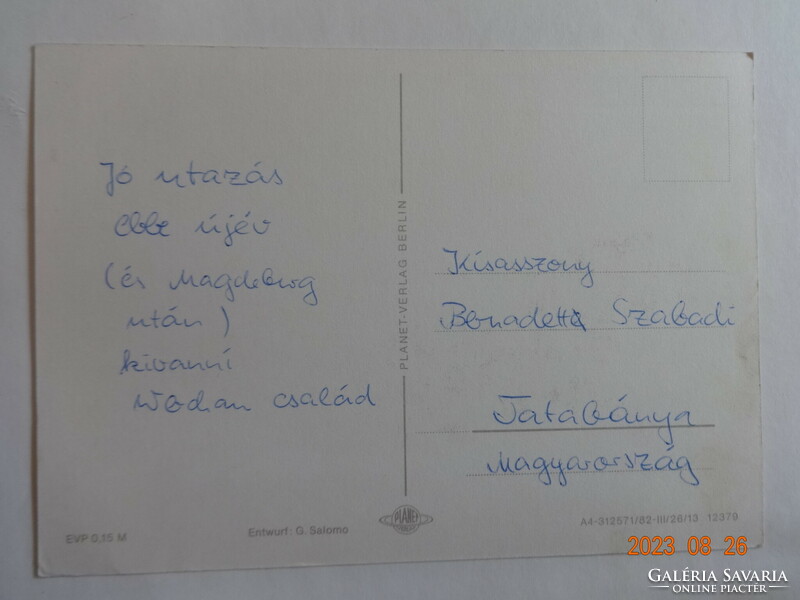 Jó utazás
Ebbe újév
(és Magdeburg
után)
kivanni
Wodian család
PLANET-VERLAG BERLIN
Kisasszony
Bernadett Szabadi
Tatabánya
Magyarország
EVP 0,15 M
Entwurf: G. Salomo
PLANET
A4-312571/82-III/26/13 12379
2023 08 26
GALÉRIA SAVARIA
ONLINE PIACTÉR